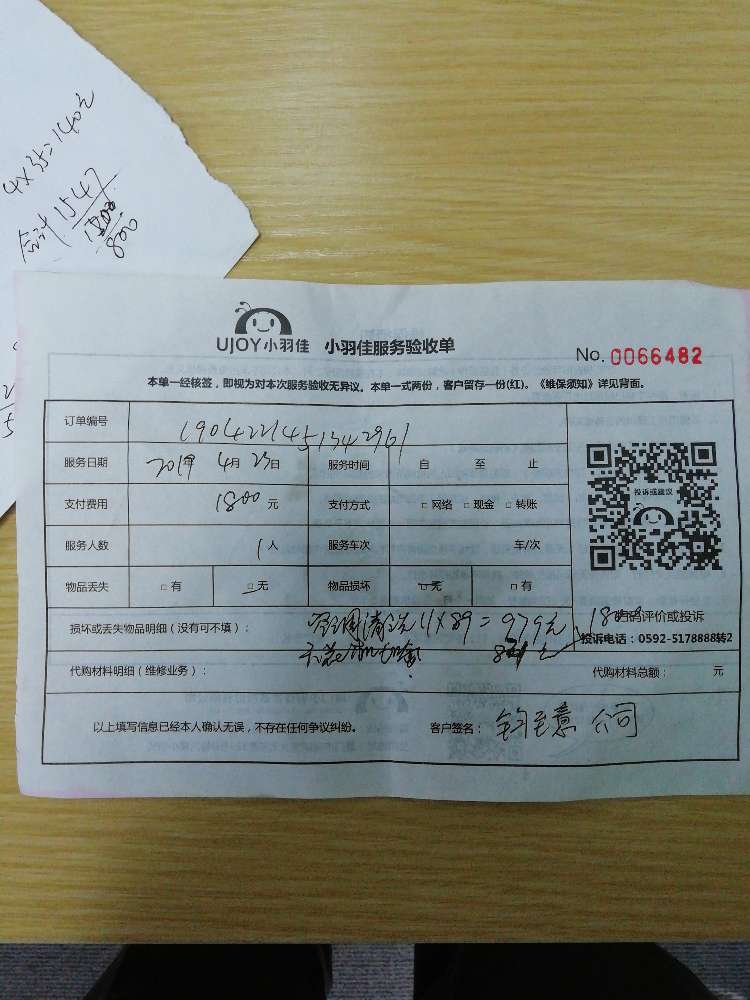 4×35=140元
合计1547
1800
800
UJOY小羽佳 小羽佳服务验收单
No. 0066482
本单一经核签，即视为对本次服务验收无异议。本单一式两份，客户留存一份(红)。《维保须知》详见背面。
订单编号 1904221451342961
服务日期 2019年 4月 23日 服务时间 自 至 止
支付费用 1800元 支付方式 □网络 □现金 □转账
服务人数 1人 服务车次 车/次
物品丢失 □有 □无 物品损坏 □无 □有
投诉或建议
扫码评价或投诉
投诉电话：0592-5178888转2
损坏或丢失物品明细（没有可不填）： 空调清洗11×89=979元 1800
821元
代购材料明细（维修业务）： 代购材料总额： 元
以上填写信息已经本人确认无误，不存在任何争议纠纷。 客户签名： 钧至意 公司